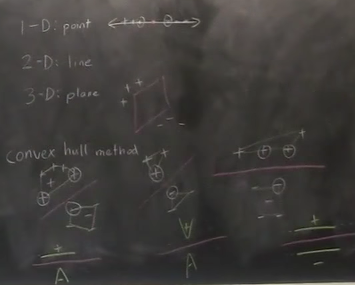 1-D: point
2-D: line
3-D: plane
convex hull method
A
A